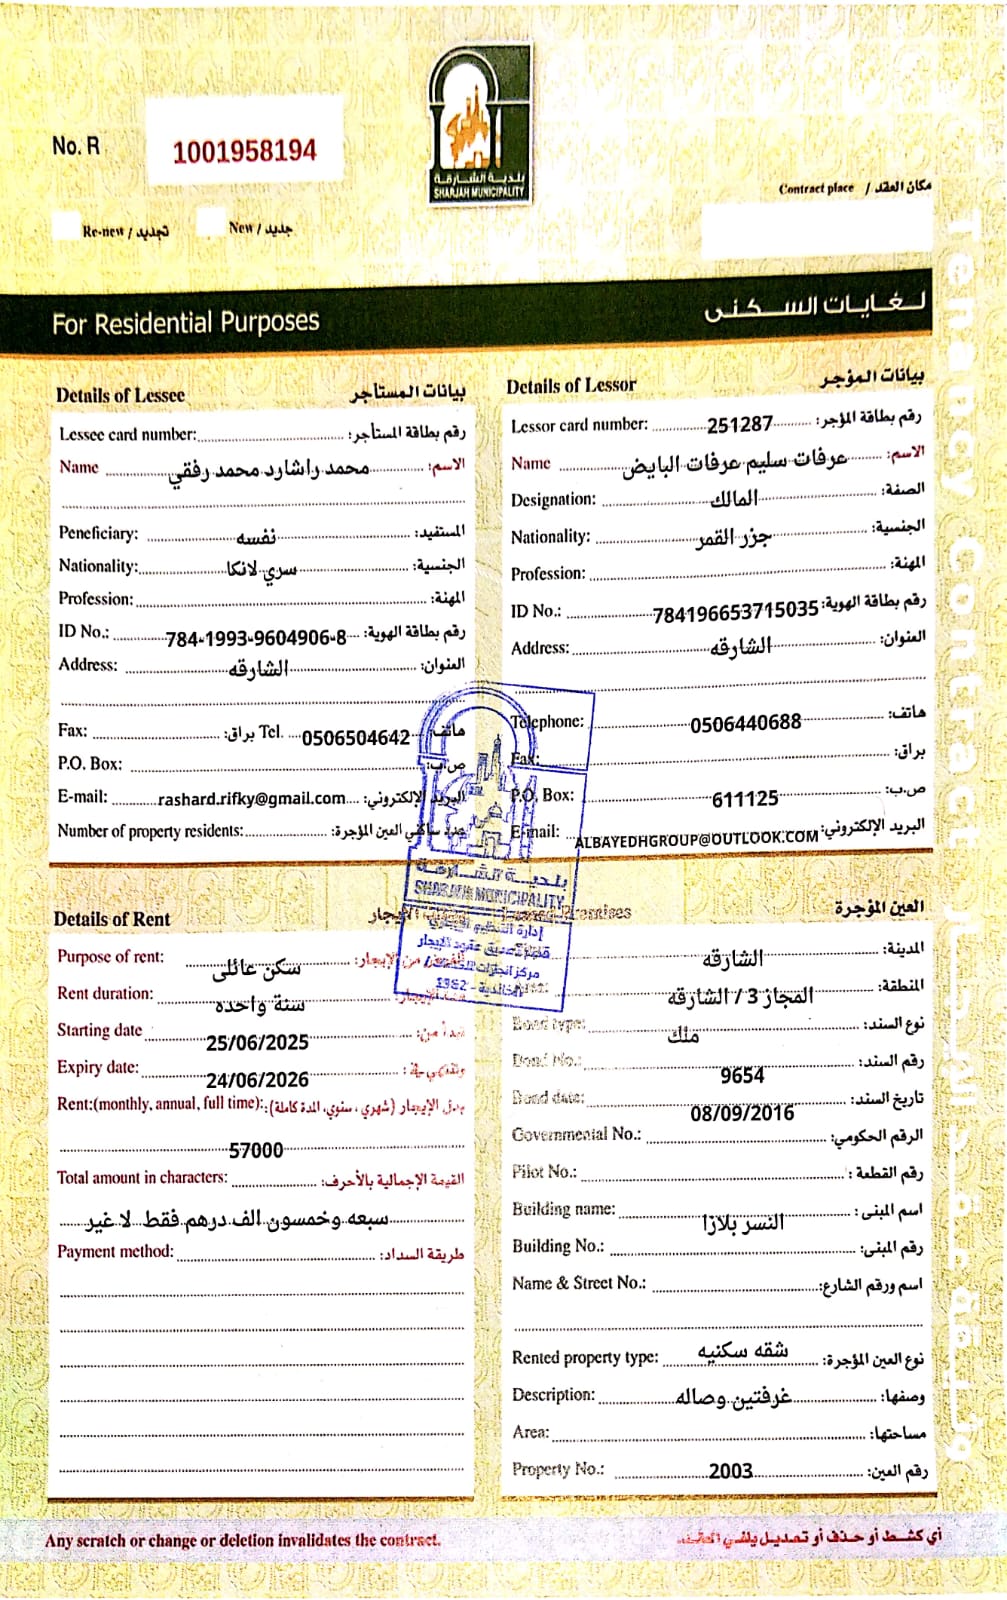 بلدية الشارقة
SHARJAH MUNICIPALITY
No. R 1001958194
Contract place / مكان العقد
Re-new / تجديد New / جديد
For Residential Purposes لغايات السكنى
Details of Lessee بيانات المستأجر
Lessee card number: رقم بطاقة المستأجر:
Name محمد راشارد محمد رفقي الاسم:
Peneficiary: نفسه المستفيد:
Nationality: سري لانكا الجنسية:
Profession: المهنة:
ID No.: 784-1993-9604906-8 رقم بطاقة الهوية:
Address: الشارقه العنوان:
Fax: براق: Tel. 0506504642 هاتف:
P.O. Box: ص.ب:
E-mail: rashard.rifky@gmail.com البريد الإلكتروني:
Number of property residents: عدد ساكني العين المؤجرة:
Details of Lessor بيانات المؤجر
Lessor card number: 251287 رقم بطاقة المؤجر:
Name عرفات سليم عرفات البايض الاسم:
Designation: المالك الصفة:
Nationality: جزر القمر الجنسية:
Profession: المهنة:
ID No.: 784196653715035 رقم بطاقة الهوية:
Address: الشارقه العنوان:
Telephone: 0506440688 هاتف:
Fax: براق:
P.O. Box: 611125 ص.ب:
E-mail: ALBAYEDHGROUP@OUTLOOK.COM البريد الإلكتروني:
بلدية الشارقة
SHARJAH MUNICIPALITY
إدارة التنظيم الإيجاري
قسم تصديق عقود الإيجار
الخالدية - 1982
Details of Rent الإيجار
Purpose of rent: سكن عائلى الغرض من الإيجار:
Rent duration: سنة واحده مدة الإيجار:
Starting date 25/06/2025 يبدأ من:
Expiry date: 24/06/2026 وينتهي في:
Rent:(monthly, annual, full time): بدل الإيجار (شهري ، سنوي، المدة كاملة):
57000
Total amount in characters: القيمة الإجمالية بالأحرف:
سبعه وخمسون الف درهم فقط لا غير
Payment method: طريقة السداد:
Leased Premises العين المؤجرة
الشارقه المدينة:
المجاز 3 / الشارقه المنطقة:
Bond type: ملك نوع السند:
Bond No.: 9654 رقم السند:
Bond date: 08/09/2016 تاريخ السند:
Governmental No.: الرقم الحكومي:
Pilot No.: رقم القطعة :
Building name: النسر بلازا اسم المبنى :
Building No.: رقم المبنى:
Name & Street No.: اسم ورقم الشارع:
Rented property type: شقه سكنيه نوع العين المؤجرة:
Description: غرفتين وصاله وصفها:
Area: مساحتها:
Property No.: 2003 رقم العين:
Any scratch or change or deletion invalidates the contract. أي كشط أو حذف أو تعديل يلغي العقد.
Tenancy Contract